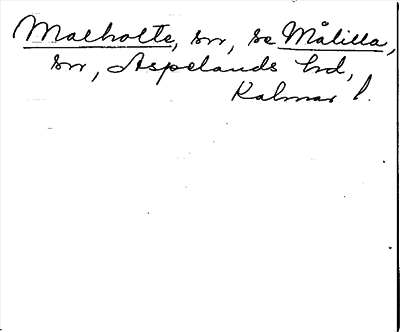 Malholte, sn, se Målilla,
sn, Aspelands hd,
Kalmar l.